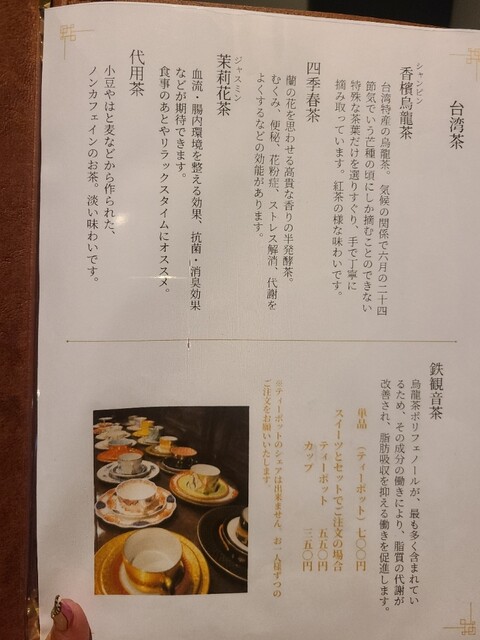 台湾茶
シャンピン
香檳烏龍茶
台湾特産の烏龍茶。気候の関係で六月の二十四
節気でいう芒種の頃にしか摘むことのできない
特殊な茶葉だけを選りすぐり、手で丁寧に
摘み取っています。紅茶の様な味わいです。
四季春茶
蘭の花を思わせる高貴な香りの半発酵茶。
むくみ、便秘、花粉症、ストレス解消、代謝を
よくするなどの効能があります。
ジャスミン
茉莉花茶
血流・腸内環境を整える効果、抗菌・消臭効果
などが期待できます。
食事のあとやリラックスタイムにオススメ。
代用茶
小豆やはと麦などから作られた、
ノンカフェインのお茶。淡い味わいです。
鉄観音茶
烏龍茶ポリフェノールが、最も多く含まれてい
るため、その成分の働きにより、脂質の代謝が
改善され、脂肪吸収を抑える働きを促進します。
単品 （ティーポット）七〇〇円
スイーツとセットでご注文の場合
ティーポット 五五〇円
カップ 三五〇円
※ティーポットのシェアは出来ません。お一人様ずつの
ご注文をお願いいたします。